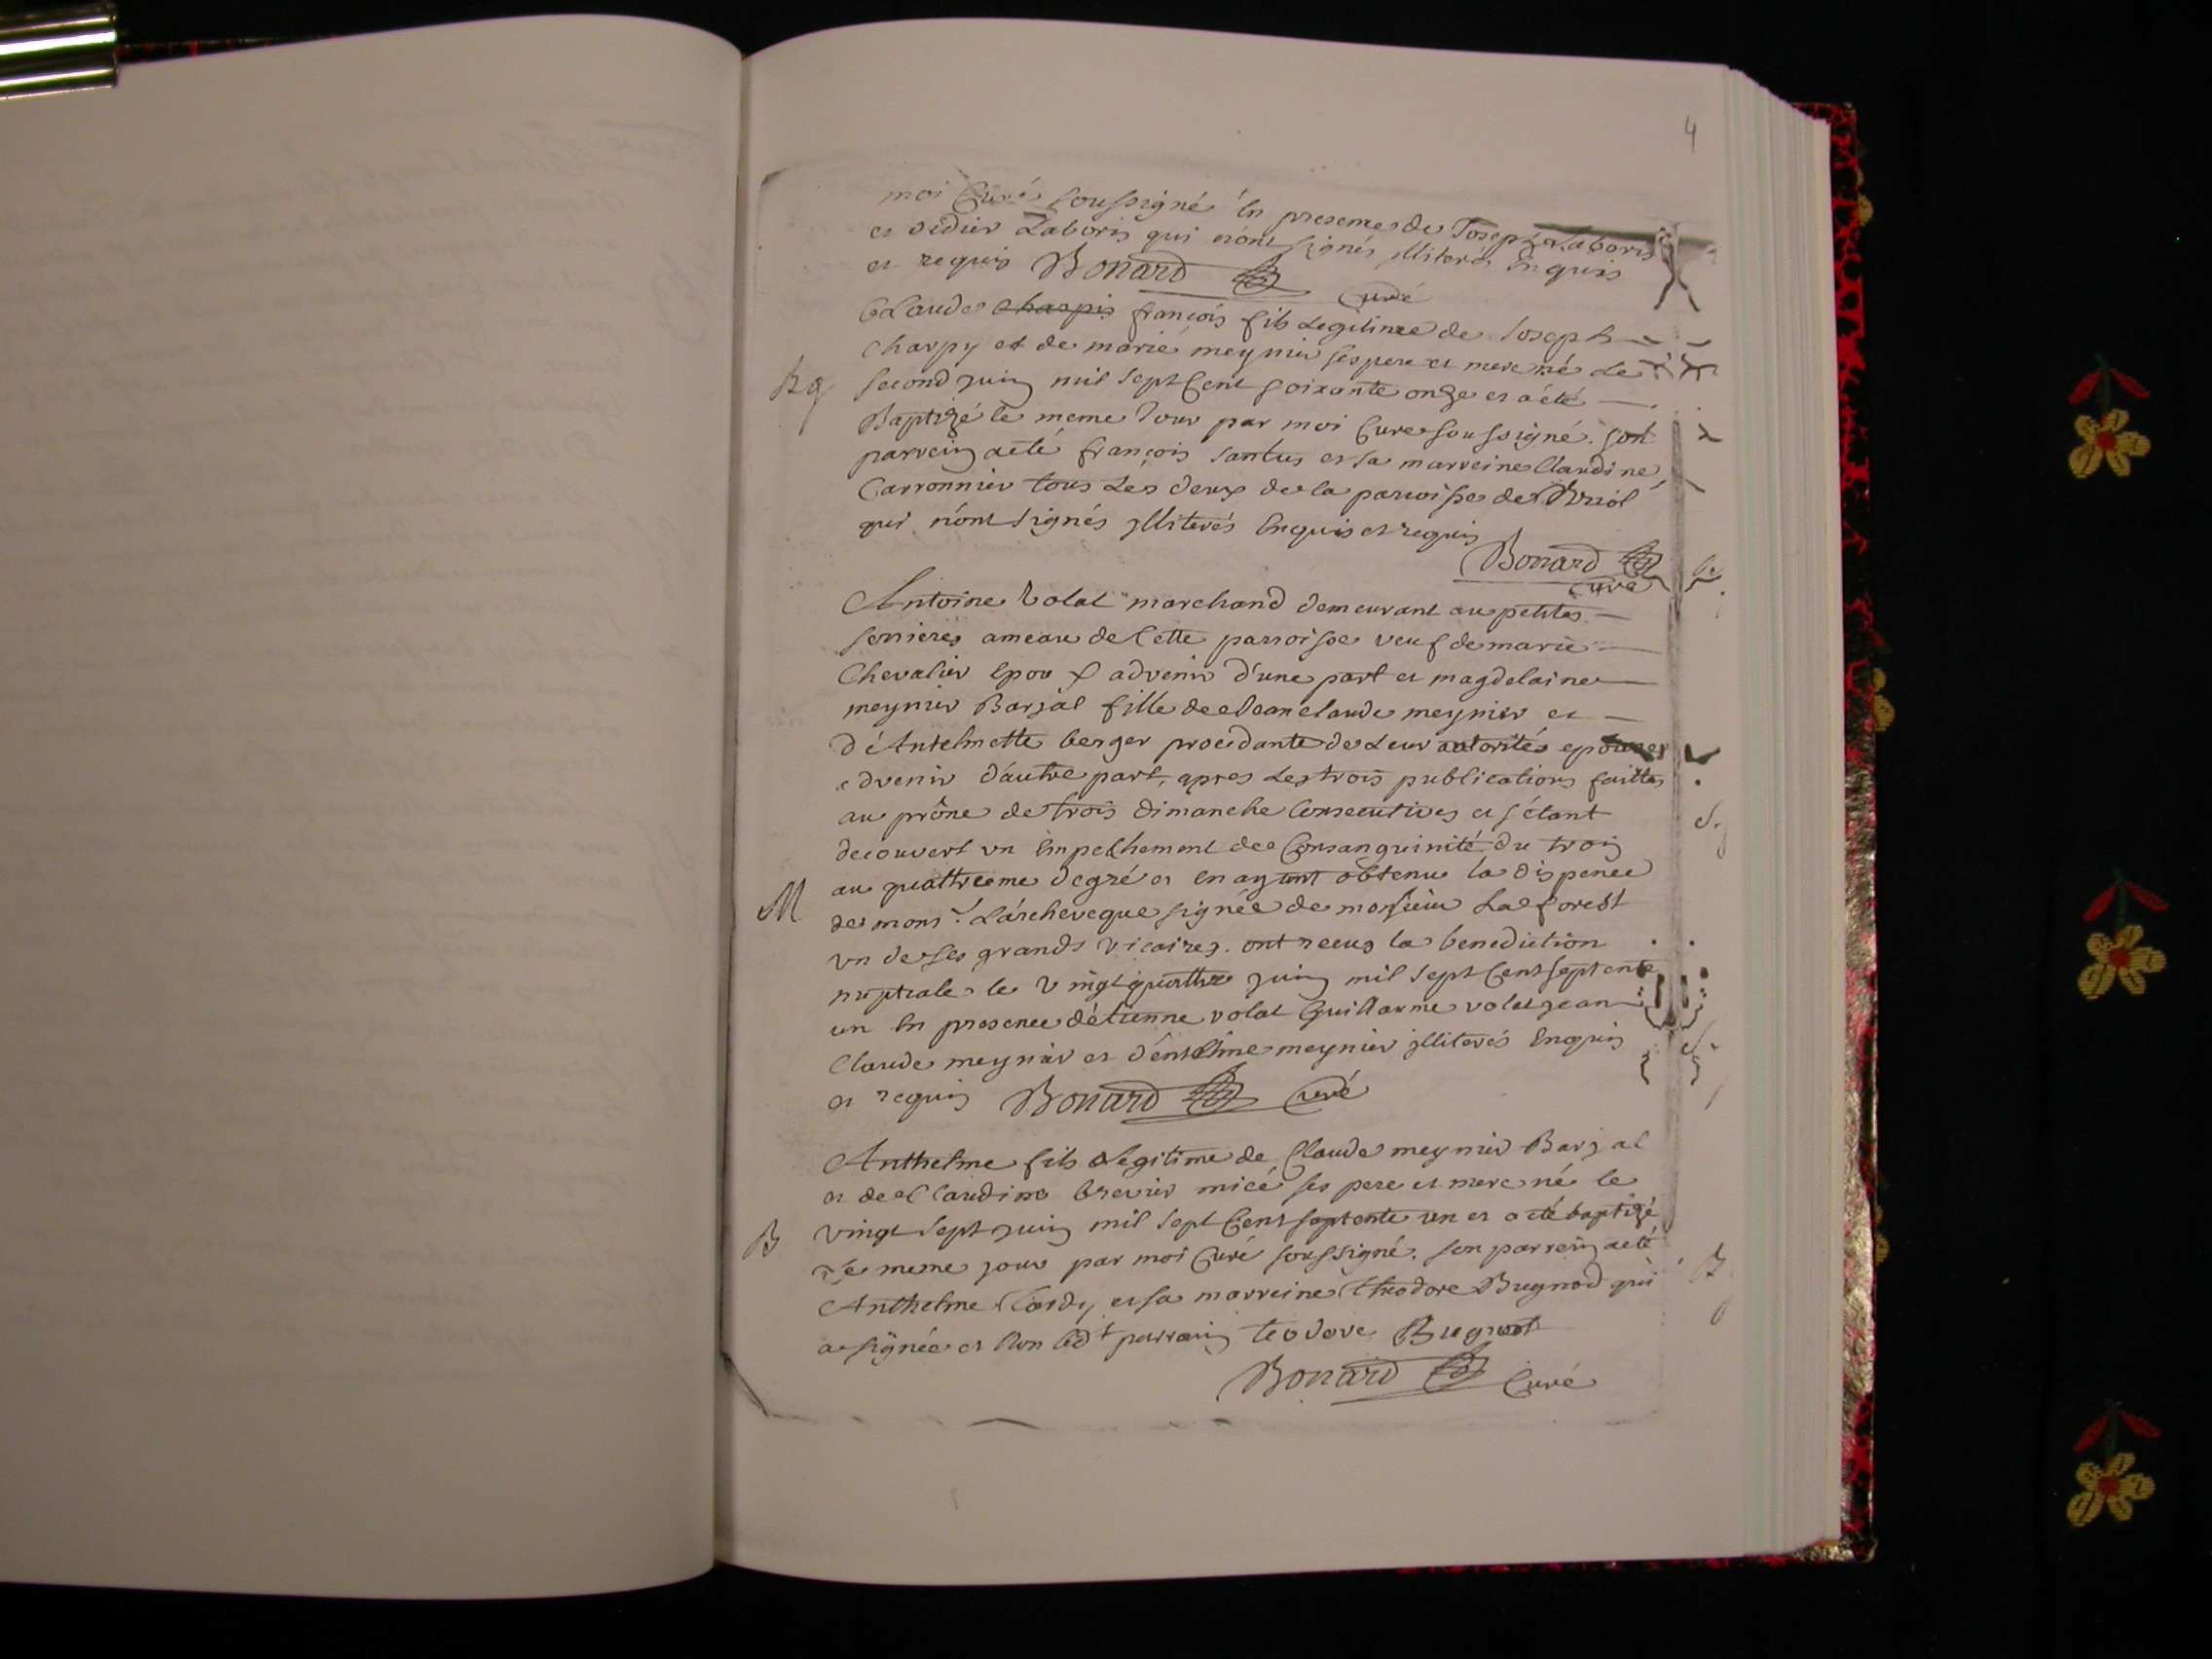 4
moi Curé soussigné En presence de Joseph Laboris
et didier Laboris qui n'ont signés illiterés Enquis
et requis Bonard Curé
Claude charpis françois fils Legitime de Joseph
Charpy et de marie meynier ses pere et mere né Le
second juin mil sept Cent soixante onze et a été
Baptizé le meme Jour par moi Curé soussigné. son
parrein a eté françois santus et sa marreine Claudine
Carronnier tous Les deux de la parroisse de
qui n'ont signés jlliterés Enquis et requis
Bonard
Curé
Antoine Volat marchand demeurant au petites
serrieres ameau de Cette parroisse veuf de marie
Chevalier Epoux advenir d'une part et magdelaine
meynier Barjal fille de Jean claude meynier et
d'Antelmette berger procedante de Leur autorités epouse
advenir d'autre part, apres Les trois publications faittes
au prône de trois dimanche Consecutives et s'étant
decouvert un Empechement de Consanguinité du trois
M
au quattreeme degré et en ayant obtenu la dispence
de mons.r L'archeveque signée de monsieur La forest
un de ses grands vicaires. ont recus la benediction
nuptiale le vingt quattre juin mil sept Cent septente
un En presence d'étienne volat Guillaume volat jean
Claude meynier et d'entelme meynier jlliterés Enquis
et requis Bonard Curé
Anthelme fils Legitime de Claude meynier Barjal
et de Claudine brevier micé ses pere et mere né le
B
vingt sept juin mil sept Cent septente un et a été baptizé
Le meme jour par moi Curé soussigné. son parrein a eté
Anthelme et sa marreine Theodore Bugnod qui
a signée et non led.t parrain teodore Bugnot
Bonard Curé